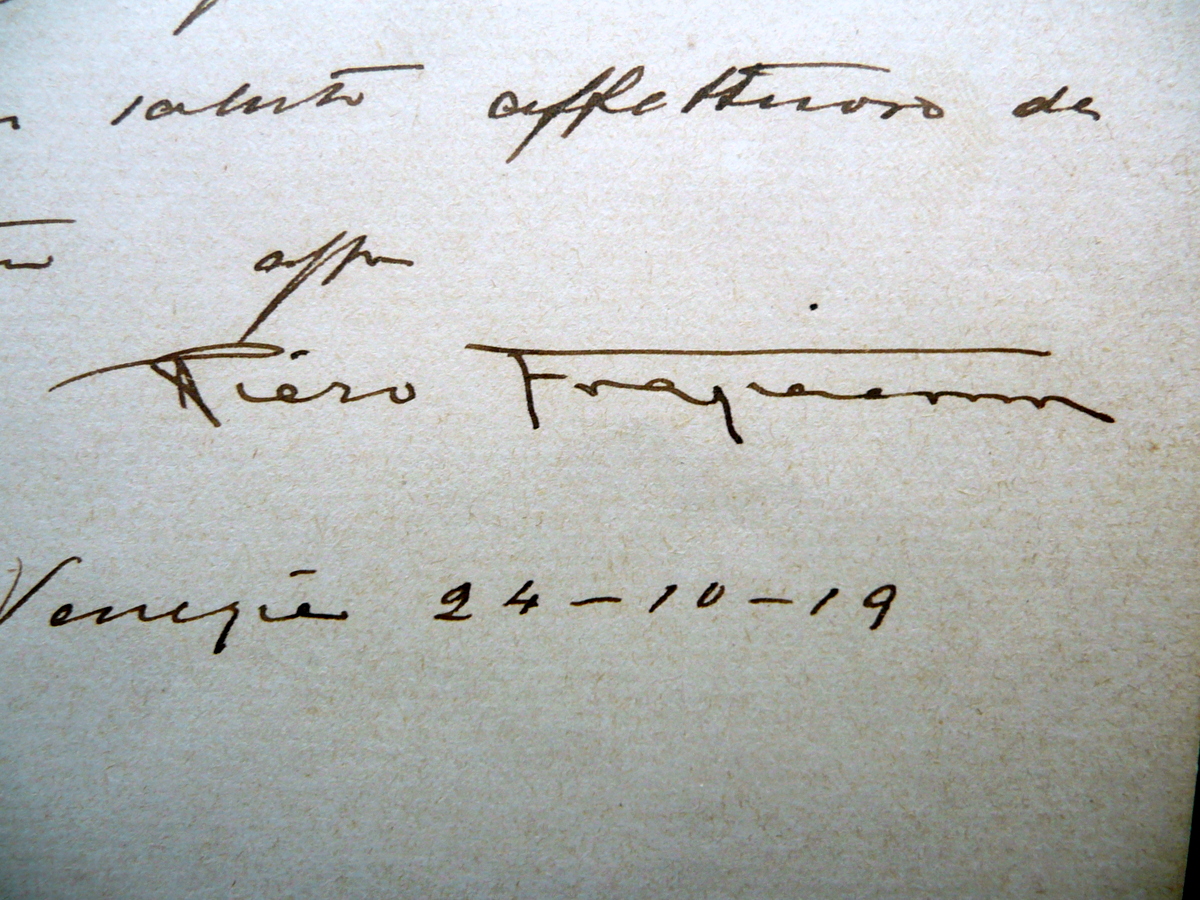 saluto affettuoso da
aff
Piero Fragiacomo
Venezia 24-10-19